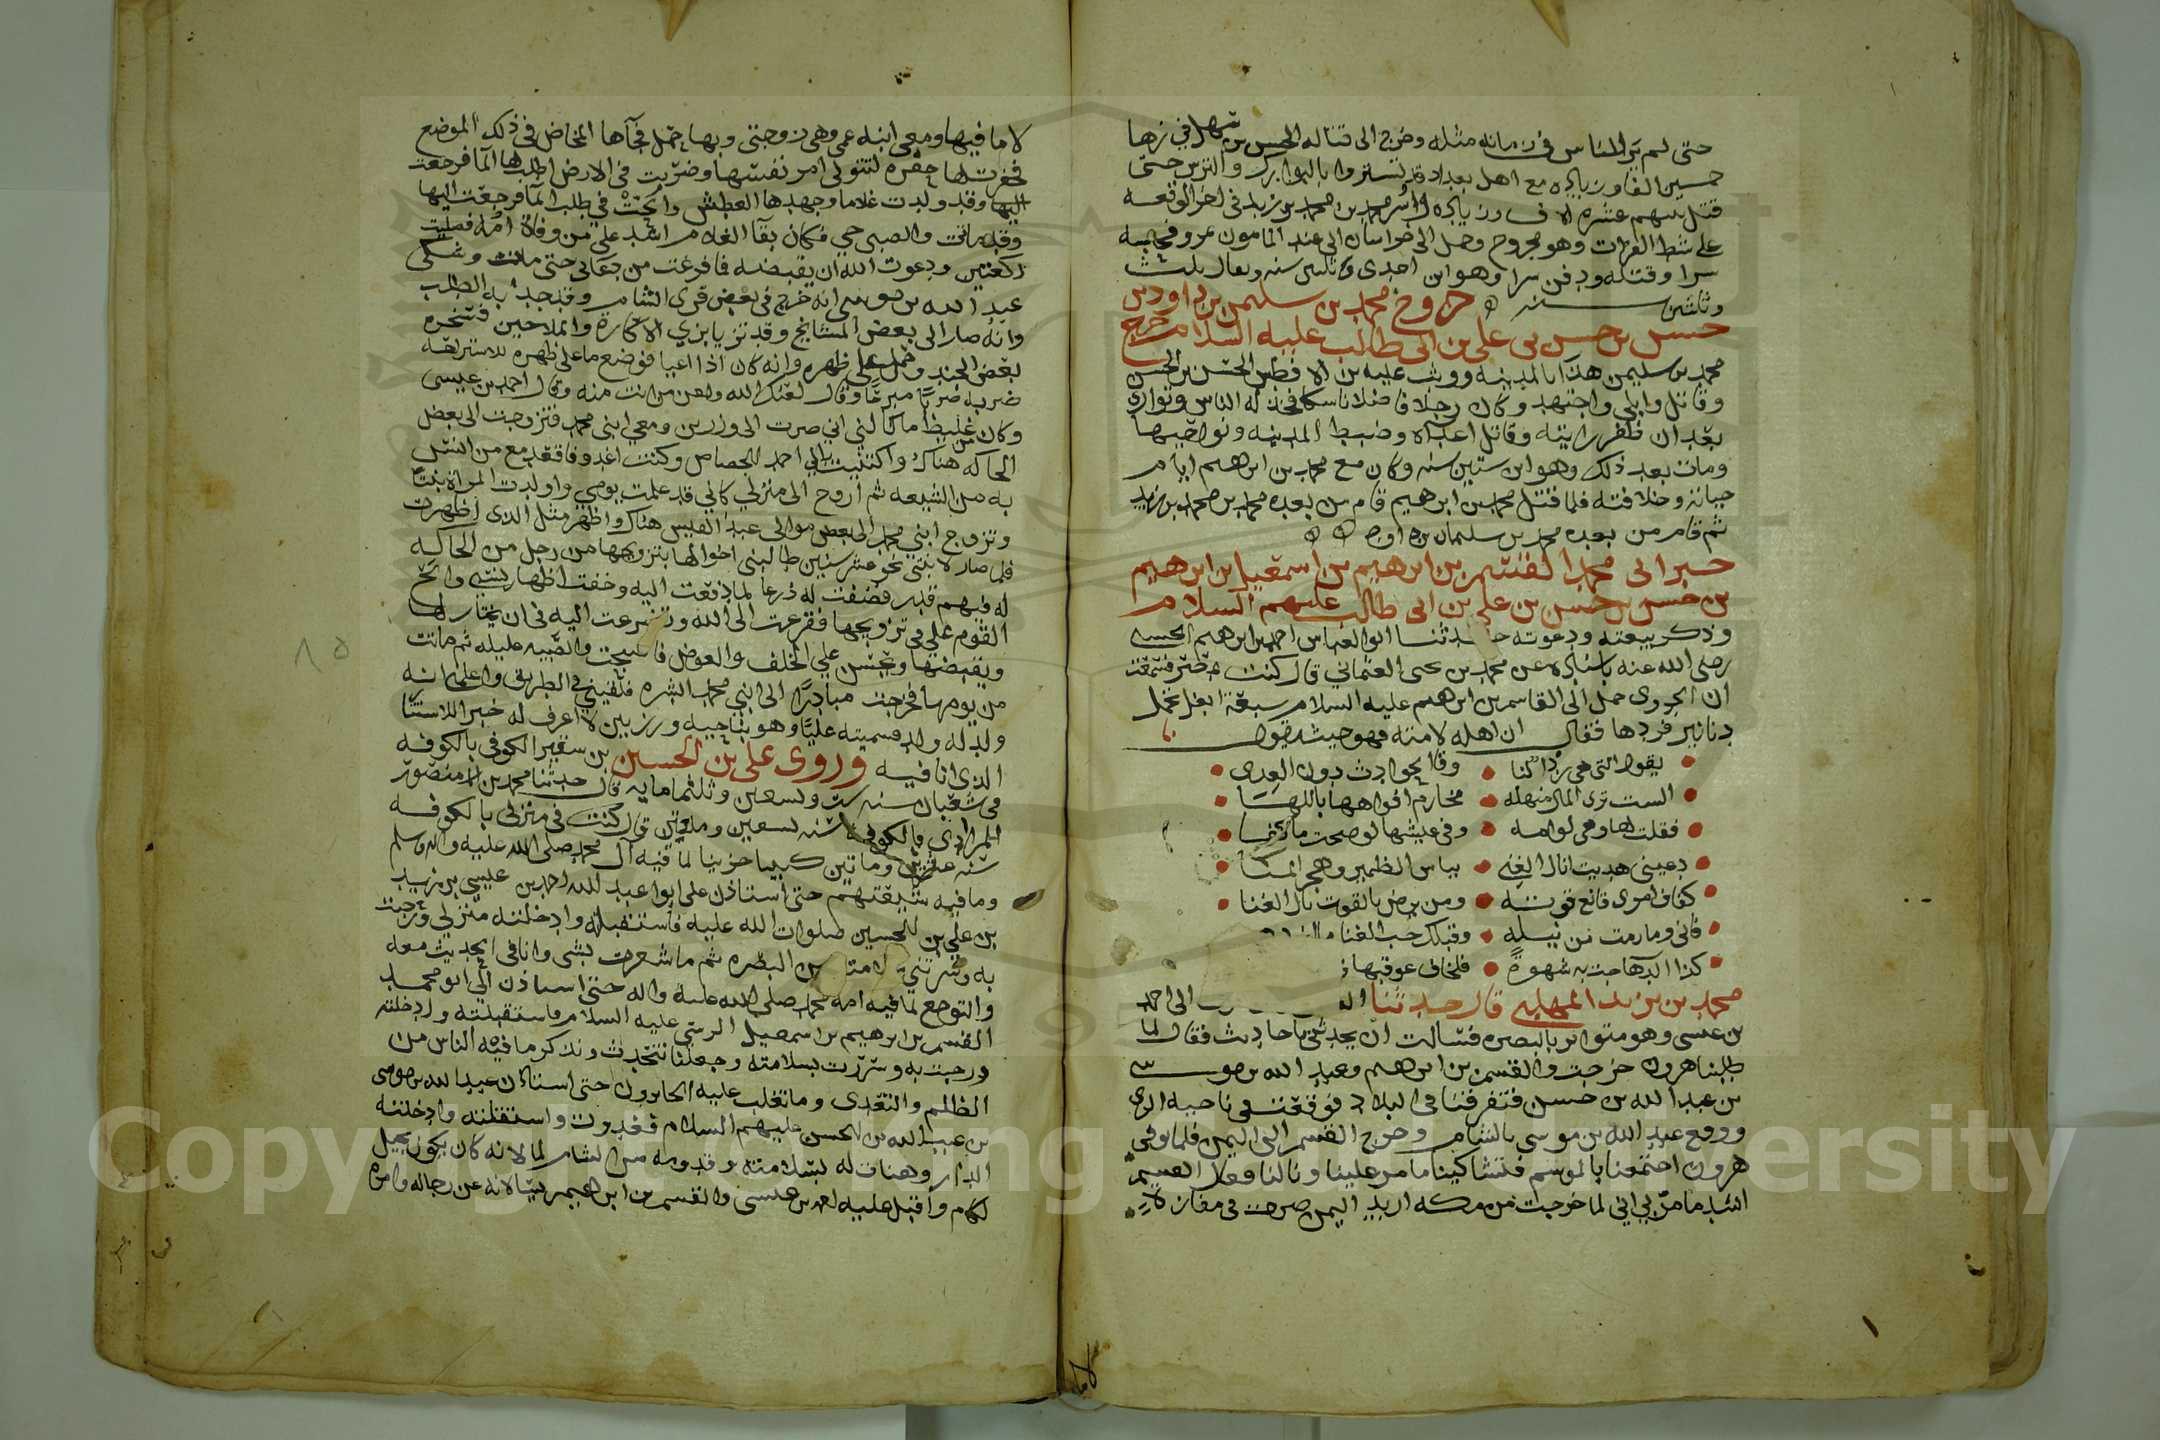 حتى لم ير الناس في زمانه مثله وخرج الى قتاله الحسن بن سهل في زها
خمسين الفا ون يادة مع اهل بغداد قد تستروا بالبوابرك والترس حتى
قتل منهم عشرة الاف ون يادة واسر محمد بن محمد بن زيد في اخر الوقعه
على شط الفرات وهو مجروح وحمل الى خراسان الى عند المامون بمرو فحبسه
سرا وقتله ودفن سرا وهو ابن احدى وثلثين سنه ويقال ثلث
وثلثين سنه خروج محمد بن سليمن بن داود بن
حسن بن حسن بن علي بن ابي طالب عليه السلام خرج
محمد بن سليمن هذا بالمدينه ووثب عليه بن الافطس الحسن بن الحسن
وقاتل وابلى واجتهد وكان رجلا فاضلا ناسكا فخذله الناس وتوارى
بعد ان ظفر رايته وقاتل اعداه وضبط المدينه ونواحيها
ومات بعد ذلك وهو ابن ستين سنه وكان مع محمد بن ابرهيم ايام
حياته وخلافته فلما قتل محمد بن ابرهيم قام من بعده محمد بن محمد بن زيد
ثم قام من بعده محمد بن سليمان بن داود
خبر ابي محمد القسم بن ابرهيم بن اسمعيل بن ابرهيم
بن حسن بن حسن بن علي بن ابي طالب عليهم السلام
وذكر بيعته ودعوته حدثنا ابو العباس احمد بن ابرهيم الحسني
رضي الله عنه باسناده عن محمد بن يحيى العثماني قال كنت بمصر فسمعت
ان الجروي حمل الى القاسم بن ابرهيم عليه السلام سبعة ابغل تحمل
دنانير فردها فقال ان اهله لامته فهو حيث يقول
يقول التي هي ردا لنا • وقا الحوادث دون العدى
الست ترى المال منهله • مخارم افواهها باللها
فقلت لها وهي لوامه • وفي عيشها لو صحت ما كفا
دعيني هديت انال الغنى • بياس الضمير وهجر المنا
كفاف امرى قانع قوته • ومن يرض بالقوت نال الغنا
فاني وما رمت من نيله • وقبلك حب الغنا
كذا الداهاجت به شهوة • فلخاف عوقبها
محمد بن يزيد المهلبي قال حدثنا الى احمد
بن عيسى وهو متوار بالبصره فسالت ان يحدثني باحاديث فقال لما
طلبنا هرون خرجت والقسم بن ابرهيم وعبد الله بن موسى
بن عبد الله بن حسن فتفرقنا في البلاد فوقعت في ناحية الري
ووقع عبد الله بن موسى بالشام وخرج القسم الى اليمن فلما توفي
هرون اجتمعنا بالموسم فتشاكينا ما مر علينا ونالنا فقال القسم
اشد ما مر بي اني لما خرجت من مكه اريد اليمن صرت في مفازة لا
لا ما فيها ومعي ابنه عمي وهي زوجتي وبها حمل فجآها المخاض في ذلك الموضع
فحفرت لها حفره لتتولى امر نفسها وضربت في الارض اطلب لها المآ فرجعت
اليها وقد ولدت غلاما وجهدها العطش والححت في طلب المآ فرجعت اليها
وقد ماتت والصبي حي فكان بقآ الغلام اشد علي من وفاة امه فصليت
ركعتين ودعوت الله ان يقبضه فما فرغت من دعائي حتى مات وشكى
عبد الله بن موسى انه خرج في بعض قرى الشام وقد جد به الطلب
وانه صار الى بعض المشايخ وقد تزيا بزي الاكارة والملاحين فتسخره
بعض الجند وحمل على ظهره وانه كان اذا اعيا فوضع ما على ظهره للاستراحه
ضربه ضربا مبرحا وقال لعنك الله ولعن من انت منه وقال احمد بن عيسى
وكان من غليظ ما نالني اني صرت الى وارزين ومعي ابني محمد فتزوجت الى بعض
الحاكه هناك واكتنيت بابي احمد الجصاص وكنت اغدو فاقعد مع من انس
به من الشيعه ثم اروح الى منزلي كاني قد عملت يومي واولدت المراة بنتا
وتزوج ابني محمد الى بعض موالي عبد القيس هناك واظهر مثل الذي اظهرت
فلما صار لابنتي نحو عشر سنين طالبني اخوالها بتزويجها من رجل من الحاكه
له فيهم قدر فضقت له ذرعا لما دفعت اليه وخفت اظهار نسبي والح
القوم علي في تزويجها ففزعت الى الله وتضرعت اليه في ان يختار لها
ويقبضها ويحسن علي الخلف والعوض فاصبحت والصبيه عليله ثم ماتت
من يومها فخرجت مبادرا الى ابني محمد ابشره فلقيني في الطريق واعلمني انه
ولد له ولد فسميته عليا وهو بناحيه ورزين لا اعرف له خبرا للاستتار
الذي انا فيه وروى علي بن الحسين بن سفير الكوفي بالكوفه
في شعبان سنه ست وتسعين وثلثمايه قال حدثنا محمد بن منصور
المرادي بالكوفه سنه تسعين ومايتين قال كنت في منزلي بالكوفه
سنه عشرين ومايتين كئيبا حزينا لما فيه آل محمد صلى الله عليه واله وسلم
وما فيه شيعتهم حتى استاذن علي ابو عبد الله احمد بن عيسى بن زيد
بن علي بن الحسين صلوات الله عليه فاستقبلته وادخلته منزلي ورحبت
به وسرتني سلامته من البصره ثم ما شعرت بشي وانا في الحديث معه
والتوجع لما فيه امة محمد صلى الله عليه واله حتى استاذن الي ابو محمد
القسم بن ابرهيم بن اسمعيل الرسي عليه السلام فاستقبلته وادخلته
ورحبت به وسررت بسلامته وجعلنا نتحدث ونذكر ما فيه الناس من
الظلم والتعدي وما تغلب عليه الجابرون حتى استاذن عبد الله بن موسى
بن عبد الله بن الحسن عليهم السلام فغدوت واستقبلته وادخلته
الدار وهنات له بسلامته وقدومه من الشام لما لانه كان يكون بجبل
لكام واقبل عليه احمد بن عيسى والقسم بن ابرهيم يسالانه عن رجاله وامره
Copyright © King University